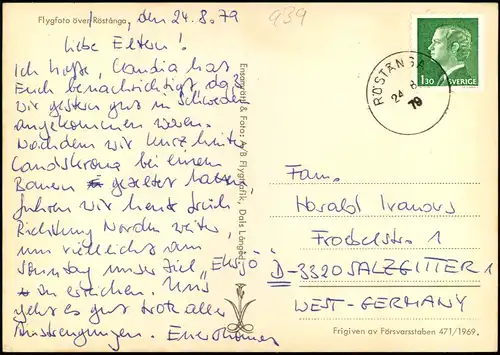 Flygfoto över Röstånga, den 24.8.79
939
Liebe Eltern!
Ich hoffe, Claudia hat
Euch benachrichtigt, daß
wir gestern gut in Schweden
angekommen waren.
Nachdem wir kurz hinter
Landskrona bei einem
Bauern gezeltet hatten,
fuhren wir heute früh
Richtung Norden weiter,
um vielleicht am
Sonntag unser Ziel "Elisjö"
zu erreichen. Uns
geht es gut trotz aller
Anstrengungen. Euer
Ensamrätt & Foto: A/B Flygtrafik, Dals Långed.
130 SVERIGE
RÖSTÅNGA
24 8
79
Fam.
Harald Ivanovs
Froebelstr. 1
D-3320 SALZGITTER 1
WEST-GERMANY
Frigiven av Försvarsstaben 471/1969.